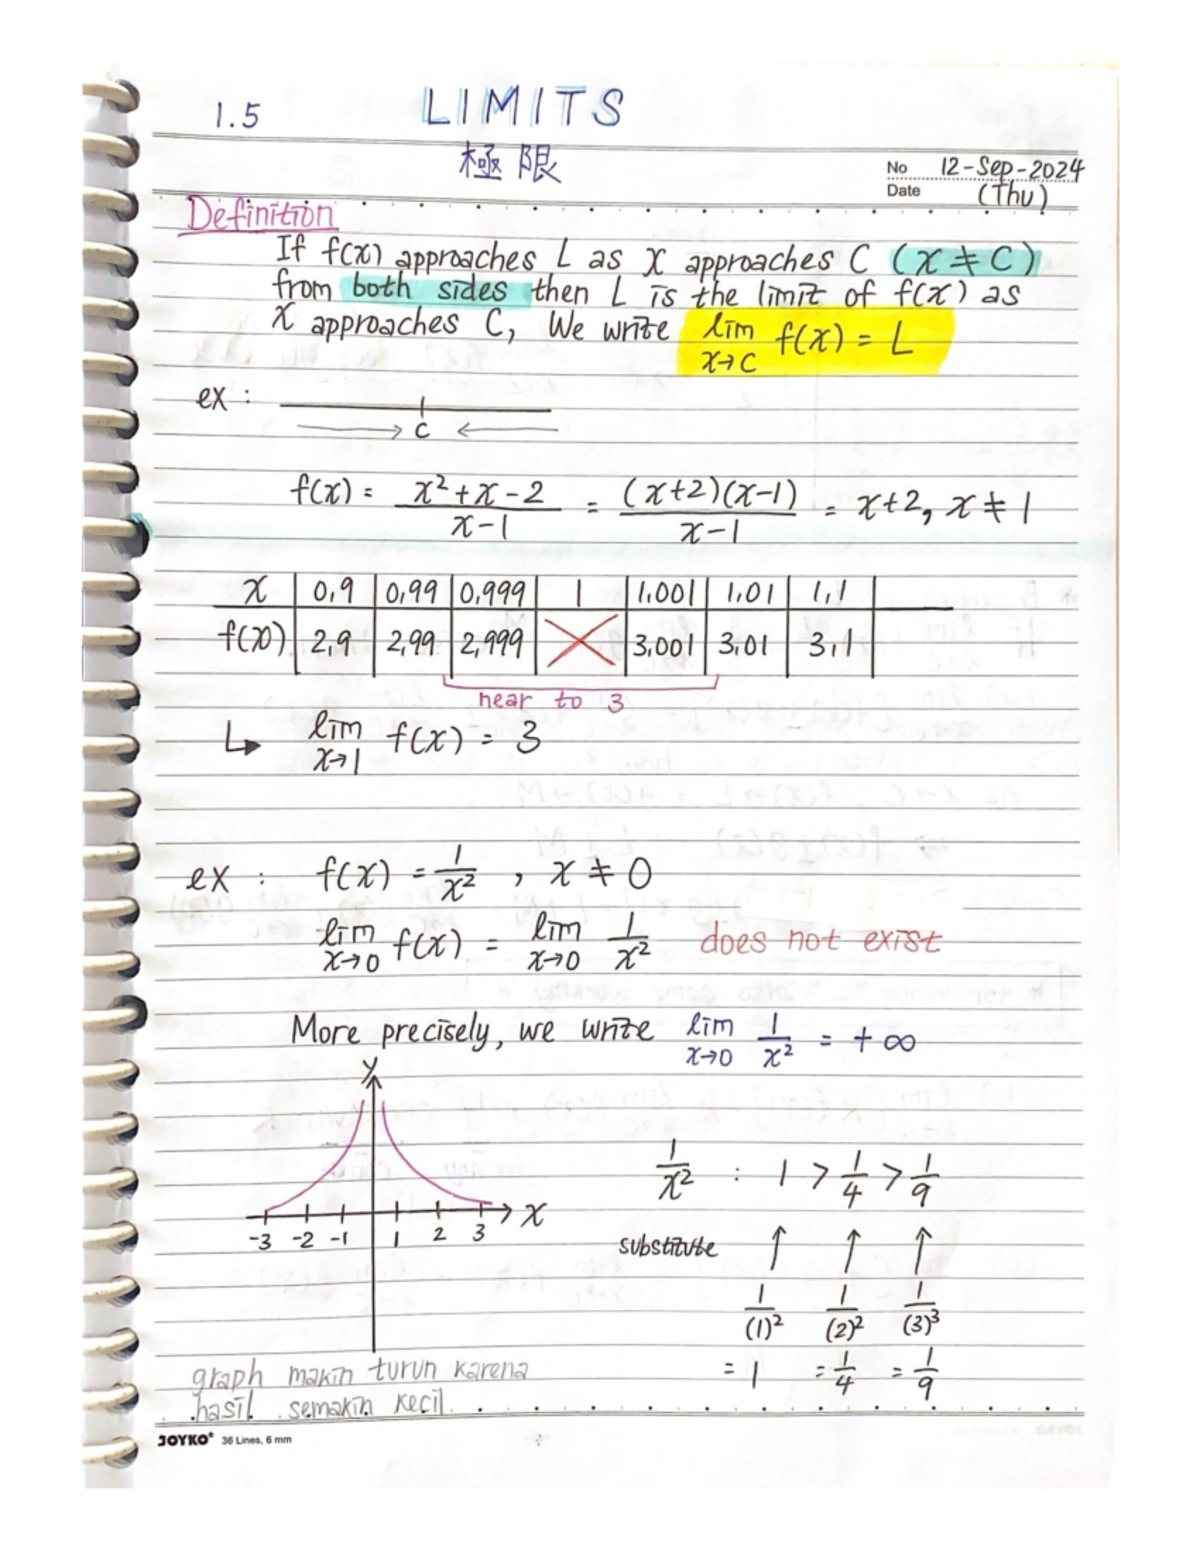 1.5 LIMITS
極限
No 12-Sep-2024
Date (Thu)
Definition
If f(x) approaches L as x approaches C (x ≠ C)
from both sides then L is the limit of f(x) as
x approaches C, We write lim x→C f(x) = L
ex :
C
f(x) = x²+x-2 / x-1 = (x+2)(x-1) / x-1 = x+2, x ≠ 1
x | 0,9 | 0,99 | 0,999 | 1 | 1,001 | 1,01 | 1,1
f(x) | 2,9 | 2,99 | 2,999 | | 3,001 | 3,01 | 3,1
near to 3
↳ lim x→1 f(x) = 3
ex : f(x) = 1/x² , x ≠ 0
lim x→0 f(x) = lim x→0 1/x² does not exist
More precisely, we write lim x→0 1/x² = +∞
y
1/x² : 1 > 1/4 > 1/9
x
-3 -2 -1 1 2 3
substitute ↑ ↑ ↑
1/(1)² 1/(2)² 1/(3)³
= 1 = 1/4 = 1/9
graph makin turun karena
hasil semakin kecil
JOYKO® 36 Lines, 6 mm